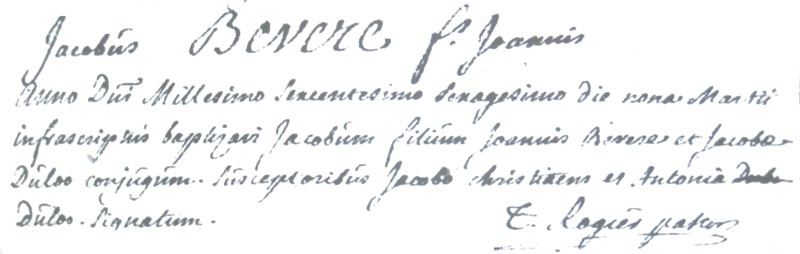 Jacobus Bevere fs Joannis
Anno Dni Millesimo Sexcentesimo Sexagesimo die nona Martii
infrascriptus baptizavi Jacobum filium Joannis Bevere et Jacobae
Duloo conjugum. Susceptoribus Jacobo Christiaens et Antonia
Duloo. Signatum. T. Rogiers pastor